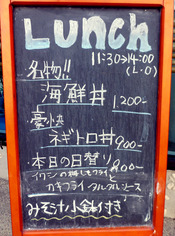 Lunch
11:30→14:00
(L・O)
名物!!
海鮮丼 1,200-
豪快
ネギトロ丼 900-
本日の日替り 800-
イワシの梅しそフライ
カキフライ タルタルソース
みそ汁小鉢付き